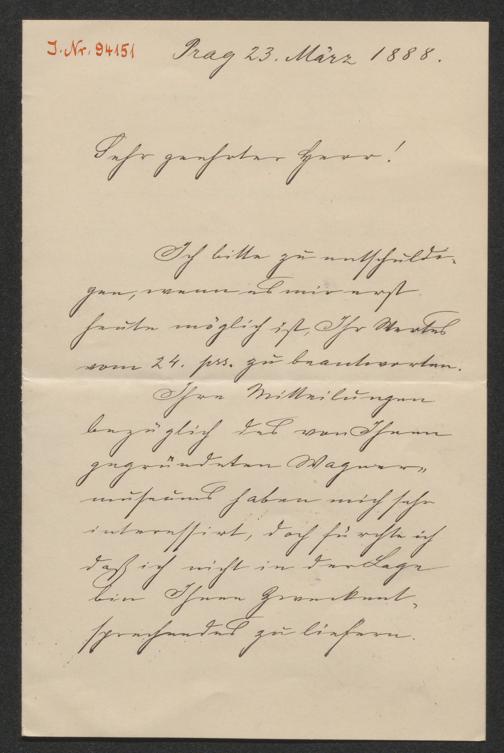 J. Nr. 94151
Prag 23. März 1888.
Sehr geehrter Herr!
Ich bitte zu entschuldi-
gen, wenn es mir erst
heute möglich ist, Ihr Wertes
vom 24. pss. zu beantworten.
Ihre Mitteilungen
bezüglich des von Ihnen
gegründeten Wagner-
museums haben mich sehr
interessirt, doch fürchte ich
daß ich nicht in der Lage
bin Ihnen Zweckent-
sprechendes zu liefern.